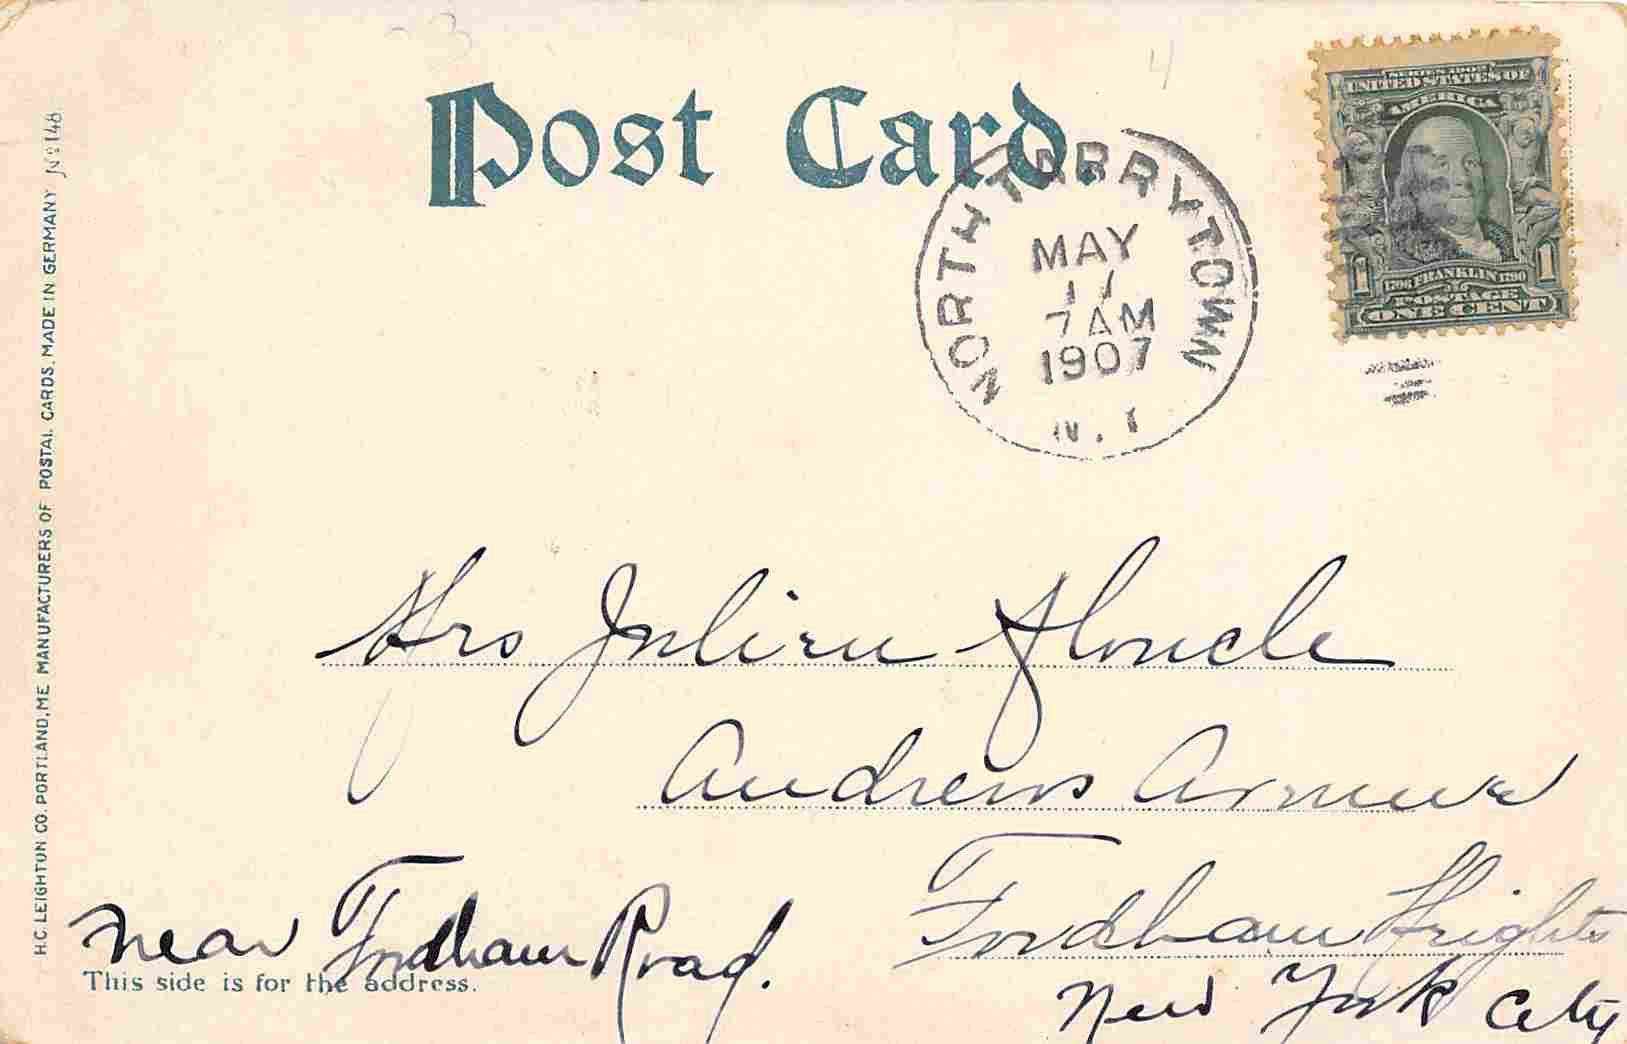 Post Card.
NORTH TARRYTOWN
MAY
17
7 AM
1907
N.Y.
SERIES 1902
UNITED STATES OF
AMERICA
1 1
1706 FRANKLIN 1790
POSTAGE
ONE CENT
H.C. LEIGHTON CO. PORTLAND, ME. MANUFACTURERS OF POSTAL CARDS. MADE IN GERMANY No 148
Mrs Julien
Andrews Avenue
Fordham Heights
near Fordham Road.
New York City
This side is for the address.
4